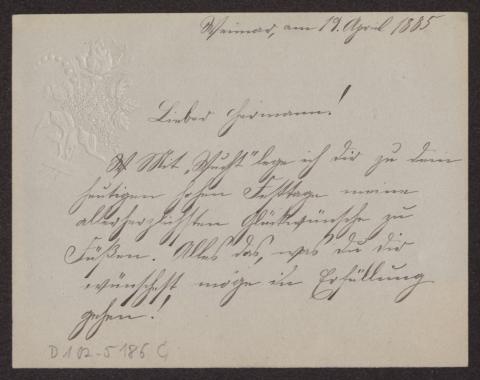 Weimar, am 19. April 1885
Lieber Hermann!
Mit „Wucht" lege ich dir zu dem
heutigen hohen Festtage meine
allerherzlichsten Glückwünsche zu
Füßen. Alles das, was du dir
wünschst möge in Erfüllung
gehen!
D 102-5186